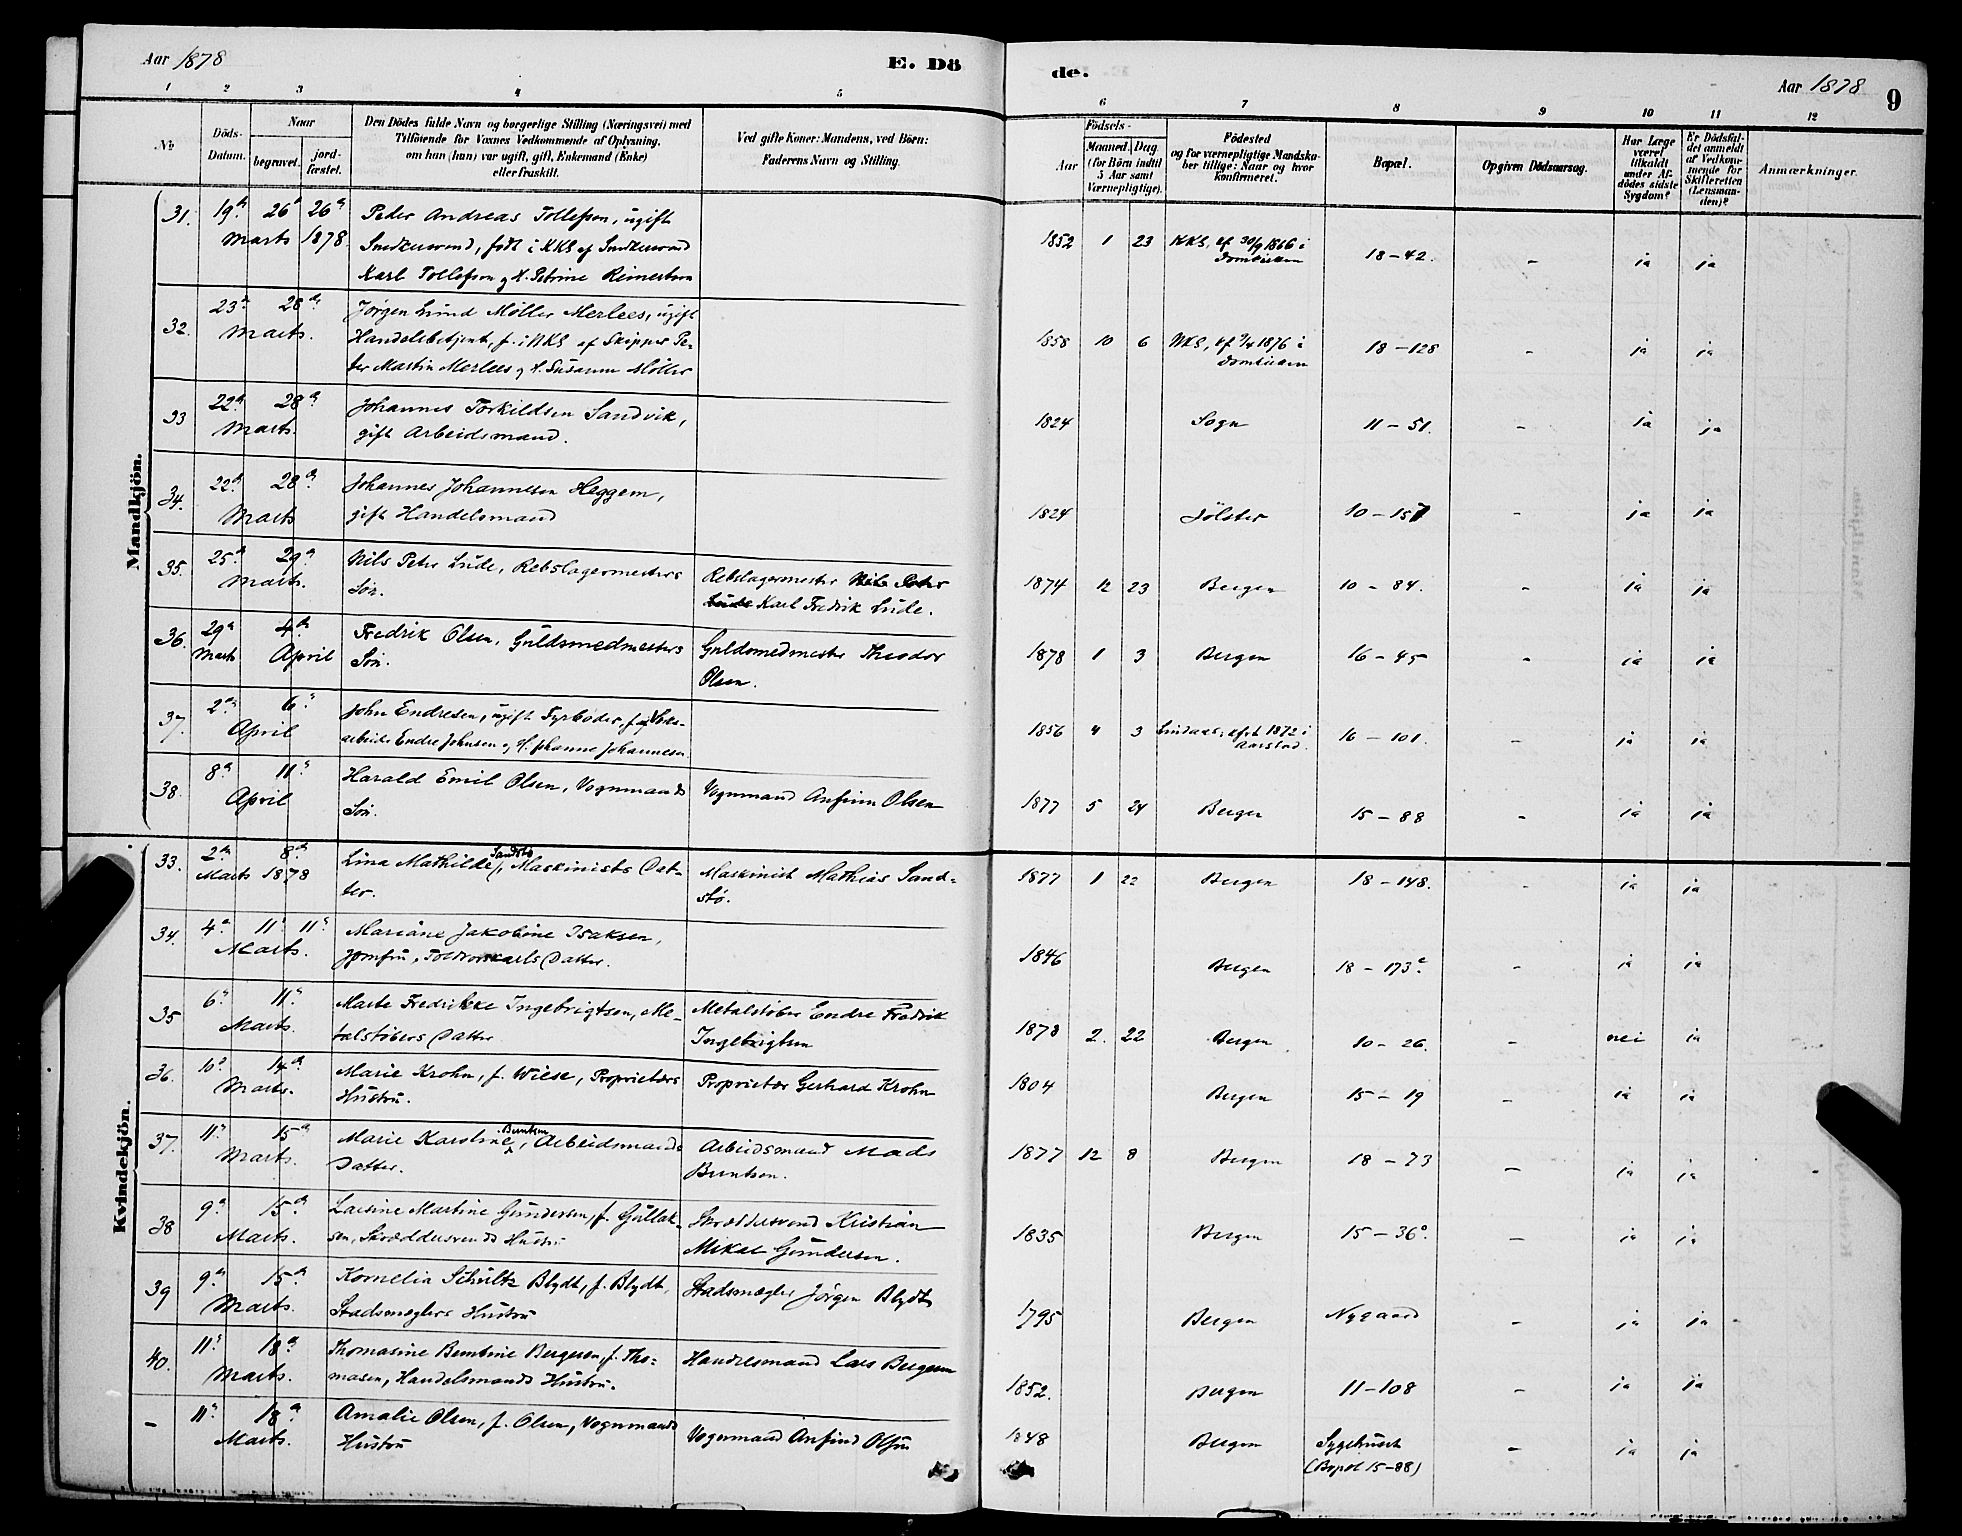 Aar 1878
E. Dö
1 2 3 4 5
No
Döds-Datum.
Naar
begravet.
jordfæstet.
Den Dödes fulde Navn og borgerlige Stilling (Næringsvei) med
Tilföiende for Voxnes Vedkommende af Oplysning,
om han (hun) var ugift, gift, Enkemand (Enke)
eller fraskilt.
Ved gifte Koner: Mandens, ved Börn:
Faderens Navn og Stilling.
de.
Aar 1878
9
6 7 8 9 10 11 12
Födsels-
Aar
Maaned. Dag.
(for Börn indtil
5 Aar samt
Værnepligtige).
Födested
og for værnepligtige Mandska-
ber tillige: Naar og hvor
konfirmeret.
Bopæl.
Opgiven Dödsaarsag.
Har Læge
været
tilkaldt
under Af-
dödes sidste
Sygdom?
Er Dödsfal-
det anmeldt
af Vedkom-
mende for
Skifteretten
(Lensman-
den)?
Anmærkninger.
Mandkjön.
31. 19de 26de 26de Peder Andreas Tollefsen, ugift 1852 1 23 KKS, cf 30/9 1866 i 18-42. - ja ja
Marts 1878 Snedkersvend, født i KKS af Snedkersvend Domkirken
Karl Tollefsen og H. Petrine Reimertsen
32. 23de 28de Jørgen Lund Møller Merlees, ugift 1858 10 6 NKS, cf 2/4 1876 i 18-128 - ja ja
Marts. Handelsbetjent, f. i NKS af Skipper Pe- Domkirken
ter Martin Merlees og H. Susanne Møller
33 22de 28de Johannes Torkildsen Sandvik, 1824 Sogn 11-51. - ja ja
Marts. gift Arbeidsmand.
34. 22de 28de Johannes Johannesen Heggem, 1824 Jölster 10-157 - ja ja
Marts gift Handelsmand
35. 25de 29de Nils Peter Lude, Rebslagermesters Rebslagermester Nils Peter 1874 12 23 Bergen 10-84. - ja ja
Marts. Søn. Lude Karl Fredrik Lude.
36. 29de 4de Fredrik Olsen, Guldsmedmesters Guldsmedmester Theodor 1878 1 3 Bergen 16-45 - ja ja
Marts April Søn. Olsen.
37. 2den 6te John Endresen, ugift Fyrbøder, 1856 4 3 Lindaas, 1872 i 16-101. - ja ja
April arbeider Endre Johnsen og H. Johanne Johannesen Aarstad.
38. 8de 11te Harald Emil Olsen, Vognmands Vognmand Anfinn Olsen 1877 5 24 Bergen 15-88 - ja ja
April Søn.
Kvindekjön.
33. 2den 8de Lina Mathilde Sandstø, Maskinists Dat- Maskinist Mathias Sand- 1877 1 22 Bergen 18-148. - ja ja
Marts 1878 ter. stø.
34. 4de 11te 11te Mariane Jakobine Isaksen, 1846 Bergen 18-173c. - ja ja
Marts. Jomfru, Toldrorskarls Datter.
35 6te 11te Marte Fredrikke Ingebrigtsen, Me- Metalstøber Endre Fredrik 1878 2. 22 Bergen 10-26. - nei ja
Marts. talstøbers Datter Ingebrigtsen
36. 10de 14de Marie Krohn, f. Wiese, Proprietærs Proprietær Gerhard Krohn 1804 Bergen 15-19 - ja ja
Marts. Hustru.
37. 11te 15de Marie Karstine Berntsen, Arbeidsmands Arbeidsmand Mads 1877 12 8 Bergen 18-73 - ja ja
Marts. Datter. Berntsen.
38 9de 15de Larsine Martine Gundersen, f. Gullak- Skræddersvend Kristian 1835 Bergen 15-36c. - ja ja
Marts. sen, Skræddersvends Hustru Mikal Gundersen.
39 9de 15de Kornelia Schultz Blydt, f. Blydt, Stadsmægler Jörgen Blydt 1795 Bergen Nygaard - ja ja
Marts. Stadsmæglers Hustru
40. 11te 18de Thomasine Berntine Bergesen, f. Tho- Handelsmand Lars Bergesen 1852. Bergen 11-108 - ja ja
Marts. masen, Handelsmands Hustru.
- 11te 18de Amalie Olsen, f. Olsen, Vognmands Vognmand Anfind Olsen 1848 Bergen Sygehuset - ja ja
Marts. Hustru (Bopæl 15-88)